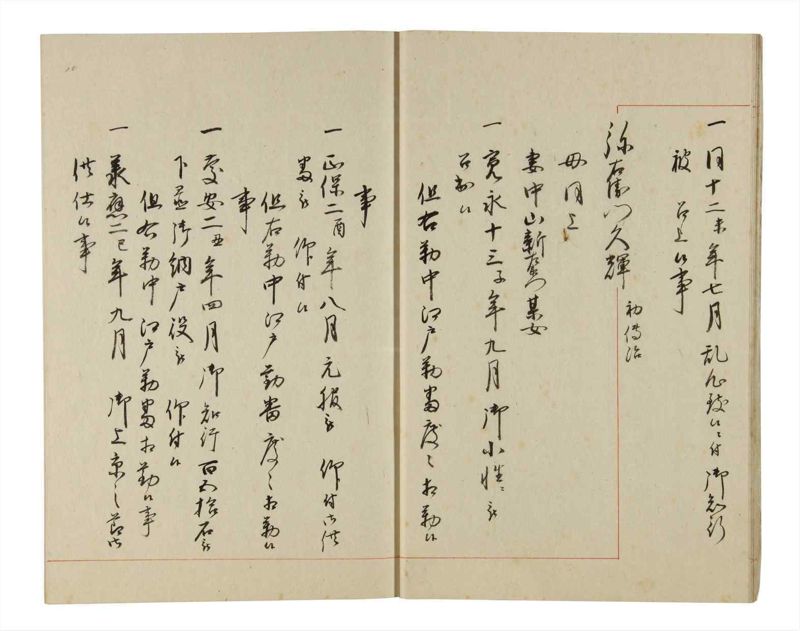 一 同十二未年七月乱心致候ニ付御知行
被 召上候事
弥右衛門久輝 初傳治
母同上
妻中山新左衛門某女
一 寛永十三子年九月御小性ニ被
召出候
但右勤中江戸勤番度々相勤候
事
一 正保二酉年八月元服被 仰付御供
番被 仰付候
但右勤中江戸勤番度々相勤候
事
一 慶安二丑年四月御知行百五拾石被
下置御納戸役被 仰付候
但右勤中江戸勤番相勤候事
一 承應二巳年九月 御上京之節御
供仕候事